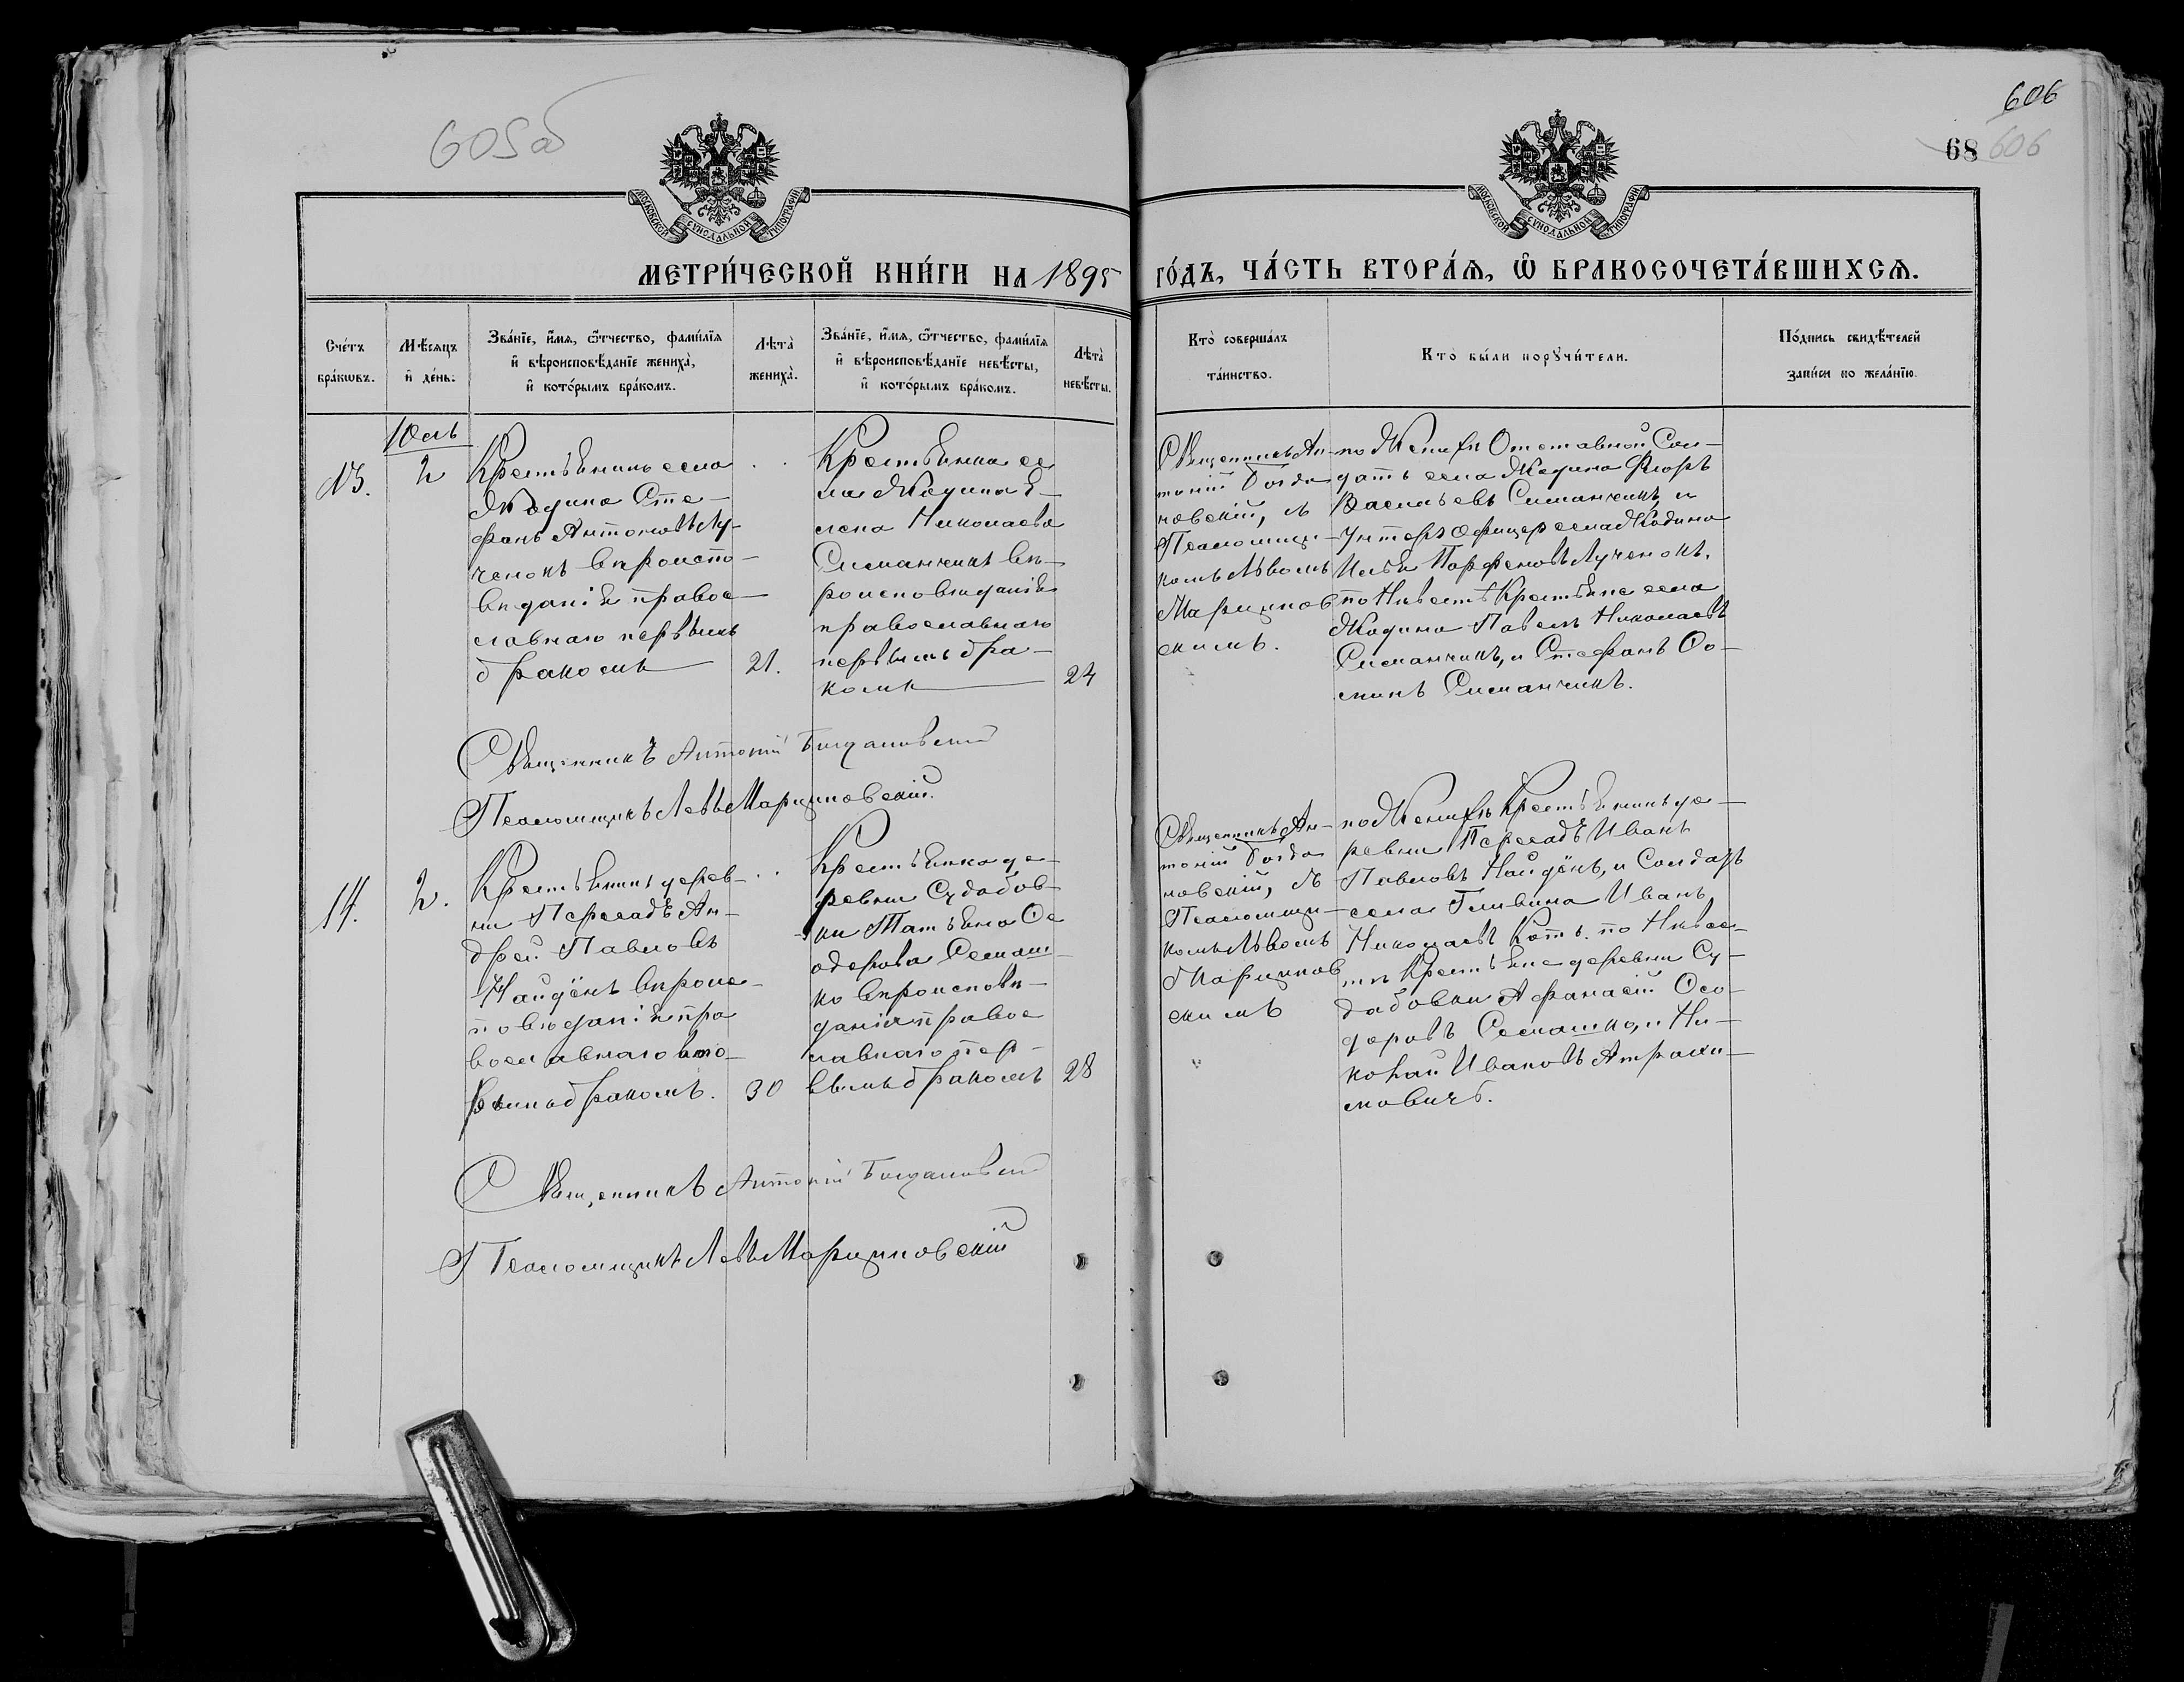 605об
606
68 606
МОСКОВСКОЙ СѴНОДАЛЬНОЙ ТИПОГРАФІИ
МОСКОВСКОЙ СѴНОДАЛЬНОЙ ТИПОГРАФІИ
МЕТРИ́ЧЕСКОЙ КНИ́ГИ НА 1895 ГО́ДЪ, ЧА́СТЬ ВТОРА́Ѧ, Ѽ БРАКОСОЧЕТА́ВШИХСѦ.
Сче́тъ
бра́кѡвъ.
Мѣ́сяцъ
и҆ де́нь.
Зва́нїе, и҆́мѧ, ѻ҆́тчество, фами́лїѧ
и҆ вѣроисповѣ́данїе жениха̀,
и҆ кото́рымъ бра́комъ.
Лѣта̀
жениха̀.
Зва́нїе, и҆́мѧ, ѻ҆́тчество, фами́лїѧ
и҆ вѣроисповѣ́данїе невѣ́сты,
и҆ кото́рымъ бра́комъ.
Лѣта̀
невѣ́сты.
Кто̀ соверша́лъ
та́инство.
Кто̀ бы́ли порꙋчи́тели.
По́дпись свидѣ́телей
за́писи по жела́нїю.
13.
Юль
2
Крестьянинъ села
Жодина Сте-
фанъ Антоновъ Лу-
ченокъ вѣроиспо-
вѣданія правос-
лавнаго первымъ
бракомъ
21.
Крестьянка се
ла Жодина Е-
лена Николаева
Симанчикъ вѣ-
роисповѣданія
православнаго
первымъ бра-
комъ
24
Священникъ Ан-
тоній Богда
новскій, съ
Псаломщи-
комъ Львомъ
Марцинов
скимъ.
по Женихѣ Отставной Сол-
датъ села Жодина Флоръ
Васильевъ Симанчикъ, и
Унтеръ Офицеръ села Жодина
Илья Парфеновъ Лученокъ,
по Невестѣ Крестьяне села
Жодина Павелъ Николаевъ
Симанчикъ, и Стефанъ Ѳо-
минъ Симанчикъ.
Священникъ Антоній Богдановскій
Псаломщикъ Левъ Марциновскій.
14.
2.
Крестьянинъ дерев-
ни Пересадъ Ан-
дрей Павловъ
Найдёнъ вѣроис-
повѣданія пра
вославнаго вто-
рымъ бракомъ.
30
Крестьянка де-
ревни Судобов-
ки Татьяна Ос
одорова Семаш-
ко вѣроисповѣ-
данія правос
лавнаго пер-
вымъ бракомъ
28
Священникъ Ан-
тоній Богда
новскій, съ
Псаломщи-
комъ Львомъ
Марцинов
скимъ
по Женихѣ Крестьянинъ де-
ревни Пересадъ Иванъ
Павловъ Найдёнъ, и Солдатъ
села Гливина Иванъ
Николаевъ Котъ. по Невес-
тѣ Крестьяне деревни Су-
добовки Афанасій Ѳео-
доровъ Семашко, и Ни-
колай Ивановъ Атрахи-
мовичъ.
Священникъ Антоній Богдановскій
Псаломщикъ Левъ Марциновскій